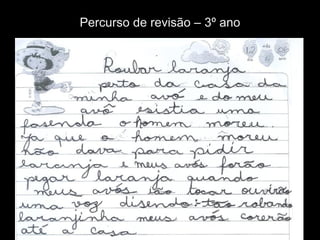 Percurso de revisão – 3º ano
Roubar laranja
perto da casa da
minha avó e do meu
avô esistia uma
fasenda o homem moreu.
Ja que o homem moreu
não dava para pidir
laranja e meus avós forão
pegar laranja quando
meus avós vão tocar ouvirão
uma voz disendo: tão robando
laranjinha meus avós corerão
até a casa